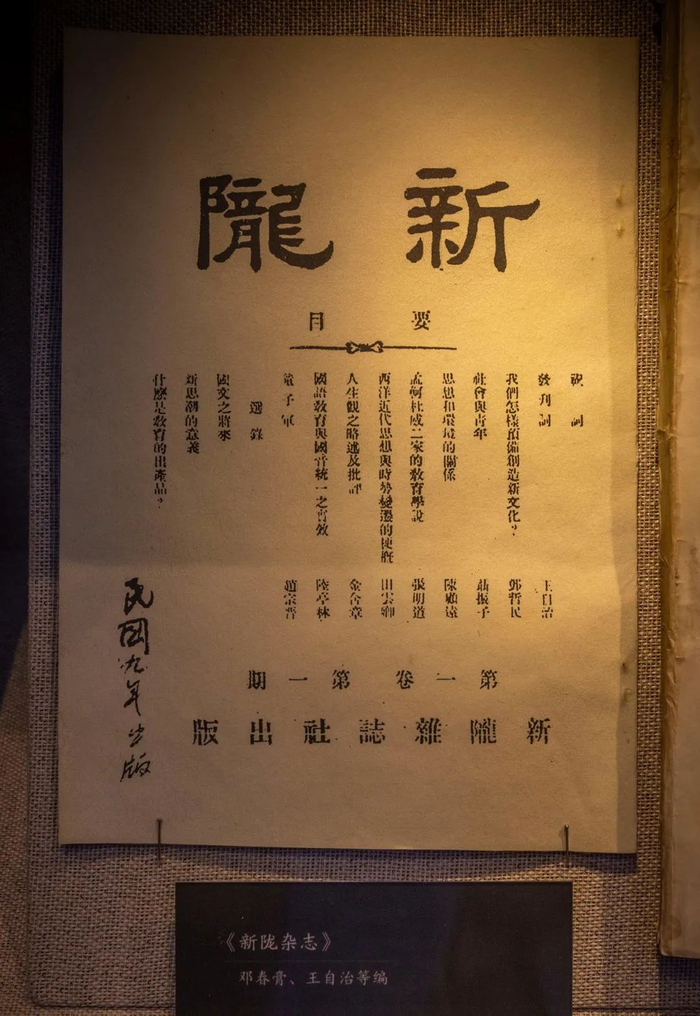 新隴
要目
祝詞
發刊詞 王自治
我們怎樣預備創造新文化? 鄧哲民
社會與青年
思想和環境的關係 陳顧遠
孟軻杜威二家的教育學說 張明道
西洋近代思想與時勢變遷的梗概
人生觀之略述及批評 金含章
國語教育與國音統一之 陸亭林
童子軍 趙宗晉
選錄
國文之將來
新思潮的意義
什麼是教育的出產品?
第一卷 第一期
新隴雜誌社出版
民國九年出版
《新陇杂志》
邓春膏、王自治等编